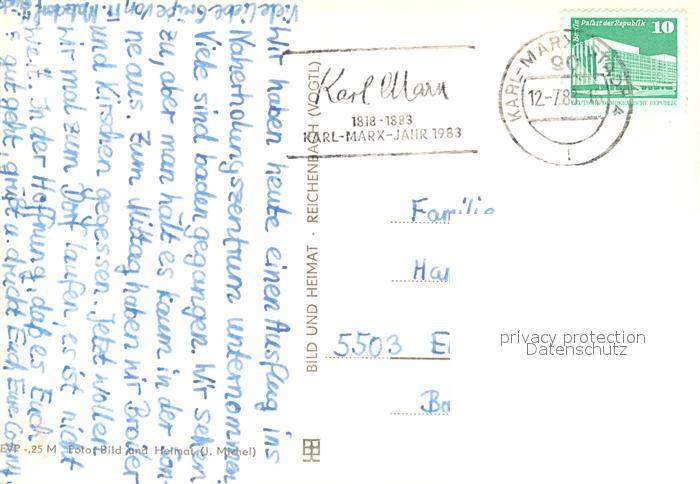 Viele liebe Grüße von
Wir haben heute einen Ausflug ins
Naherholungszentrum unternommen.
Viele sind baden gegangen. Wir sehen
zu, aber man hält es kaum in der Son-
ne aus. Zum Mittag haben wir Broiler
und Kirschen gegessen. Jetzt wollen
wir mal zum Dorf laufen, es ist nicht
weit. In der Hoffnung, daß es Euch
gut geht, grüßt u. drückt Euch Eure
EVP -,25 M Foto: Bild und Heimat (J. Michel)
BILD UND HEIMAT · REICHENBACH (VOGTL)
Karl Marx
1818-1883
KARL-MARX-JAHR 1983
KARL-MARX-STADT 4
12.-7.8
Berlin Palast der Republik
10
DEUTSCHE DEMOKRATISCHE REPUBLIK
Familie
Har
5503 El
Ba
privacy protection
Datenschutz